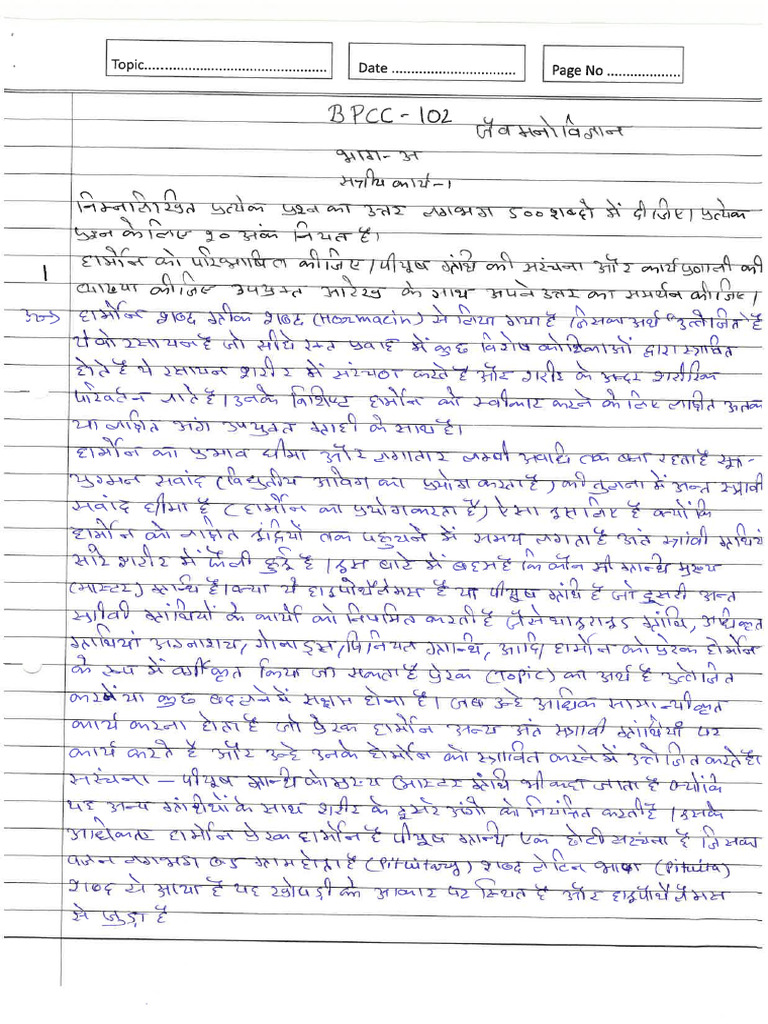 Topic............................................
Date ..............................
Page No ..................
BPCC - 102
जैव मनोविज्ञान
भाग- अ
सत्रीय कार्य-1
निम्नलिखित प्रत्येक प्रश्न का उत्तर लगभग 500 शब्दो में दीजिए। प्रत्येक
प्रश्न के लिए 20 अंक नियत है।
1 हार्मोन को परिभाषित कीजिए। पीयूष ग्रंथि की सरंचना और कार्यप्रणाली की
व्याख्या कीजिए उपयुक्त आरेख के साथ अपने उत्तर का समर्थन कीजिए।
उत्तर हार्मोन शब्द ग्रीक शब्द (Hoormacin) से लिया गया है जिसका अर्थ उत्तेजित है
ये वो रसायन है जो सीधे रक्त प्रवाह में कुछ विशेष कोशिकाओं द्वारा स्त्रावित
होते है ये रसायन शरीर में संरचण करते है और शरीर के अन्दर शारीरिक
परिवर्तन लाते है। उनके विशिष्ट हार्मोन को स्वीकार करने के लिए लक्षित अतक
या लक्षित अंग उपयुक्त ग्राही के साथ है।
हार्मोन का प्रभाव धीमा और लगातार लम्बी अवधि तक बना रहता है सूत्र-
युग्मन सवांद (विद्युतीय आवेग का प्रयोग करता है) की तुलना में अन्त स्त्रावी
सवांद धीमा है (हार्मोन का प्रयोग करता है) ऐसा इसलिए है क्योंकि
हार्मोन को लक्षित इंद्रियों तक पहुचने में समय लगता है अंत स्त्रावी ग्रंथियं
सारे शरीर में फैली हुई है। इस बारे में बहस है कि कौन सी ग्रान्थि मुख्य
(मास्टर) ग्रन्थि है। क्या ये हाइपोथैलेमस है या पीयूष ग्रंथि है जो दूसरी अन्त
स्त्रावी ग्रंथियों के कार्यो को नियमित करती है जैसे थाइराइड ग्रंथि, अधिवृक्त
ग्रंथियां अग्नाशय, गोनाड्स, पिनियल ग्रान्थि, आदि हार्मोन को प्रेरक हार्मोन
के रूप में वर्गीकृत किया जा सकता है प्रेरक (Topic) का अर्थ है उत्तेजित
करने या कुछ बदलने में सक्षम होना है। जब उन्हे अधिक सामान्यीकृत
कार्य करना होता है जो प्रेरक हार्मोन अन्य अंत स्त्रावी ग्रंथियों पर
कार्य करते है और उन्हे उनके हार्मोन को स्त्रावित करने में उत्तेजित करते है।
सरंचना – पीयूष ग्रान्थि को मुख्य (मास्टर) ग्रंथि भी कहा जाता है क्योंकि
यह अन्य ग्रंथियों के साथ शरीर के दूसरे अंगो को नियंत्रित करती है। इसके
अधिकतर हार्मोन प्रेरक हार्मोन है पीयूष ग्रान्थि एक छोटी सरंचना है जिसका
वजन लगभग ग्राम होता है (Pituitary) शब्द लेटिन भाषा (Pituita)
शब्द से आया है यह खोपड़ी के आकार पर स्थित है और हाइपोथैलेमस
से जुड़ा है